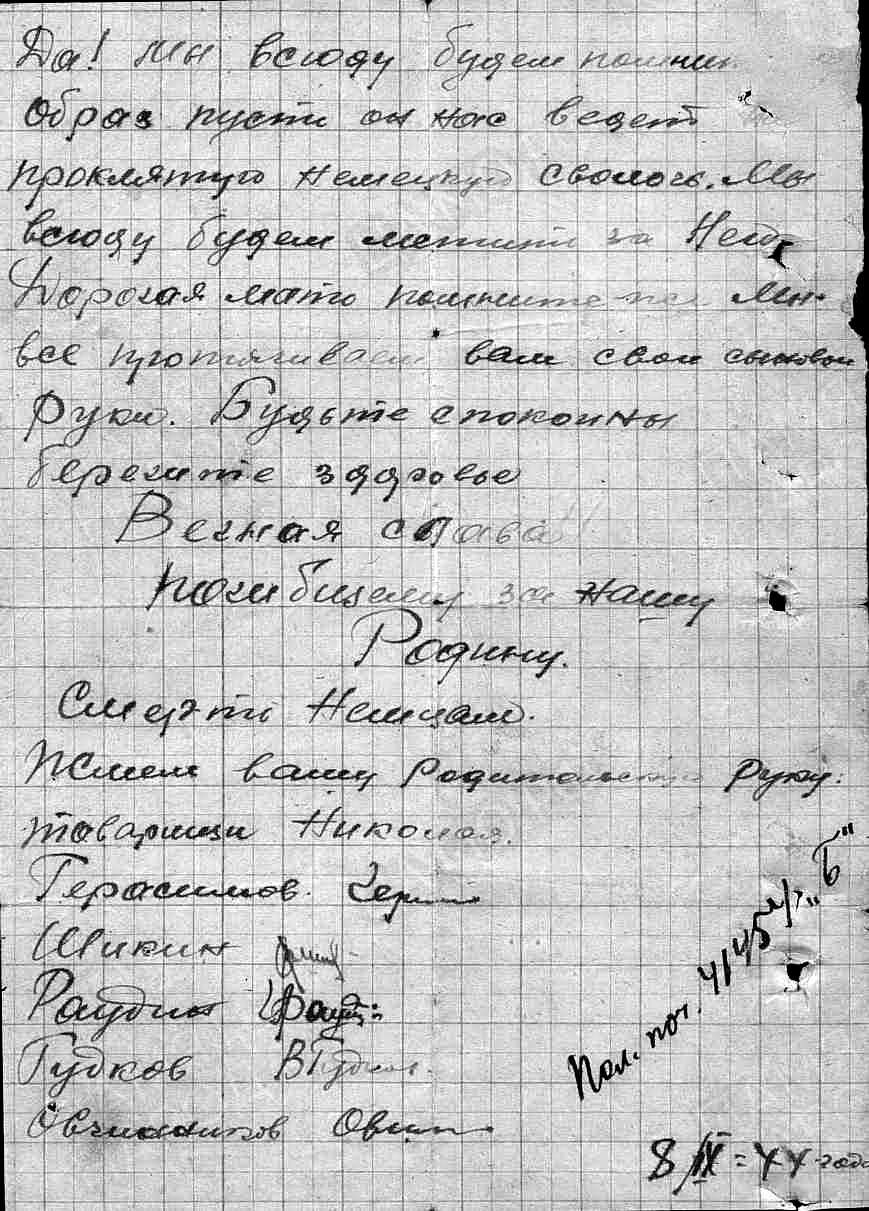 Да! Мы всюду будем помнить
образ пусть он нас ведет
проклятую немецкую сволочь. Мы
всюду будем мстить за Него
Дорогая мать помните Мы
все протягиваем вам свои сыновьи
руки. Будьте спокойны
берегите здоровье
Вечная слава!!
погибшему за нашу
Родину.
Смерть Немцам.
Жмем вашу Родительскую руку:
товарищи Николая.
Герасимов.
Шикин
Раудин
Гудков ВГудков
Овчинников Овчин
Пол. поч. 41451 "Б"
8/IX = 44 года